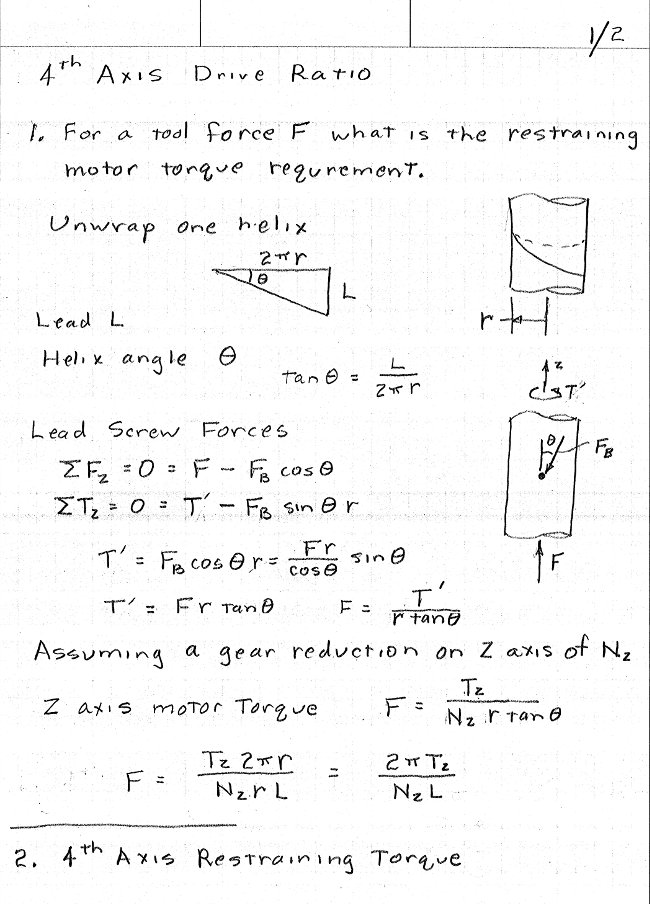 1/2
4th Axis Drive Ratio
1. For a tool force F what is the restraining
motor torque requrement.
Unwrap one helix
2πr
θ
L
r
Lead L
Helix angle θ
tan θ = L / 2πr
z
T'
Lead Screw Forces
θ
F_B
ΣF_z = 0 = F - F_B cos θ
ΣT_z = 0 = T' - F_B sin θ r
T' = F_B cos θ r = Fr / cos θ sin θ
F
T' = Fr Tan θ F = T' / r tan θ
Assuming a gear reduction on Z axis of N_z
Z axis motor Torque F = T_z / N_z r tan θ
F = T_z 2πr / N_z r L = 2π T_z / N_z L
2. 4th Axis Restraining Torque